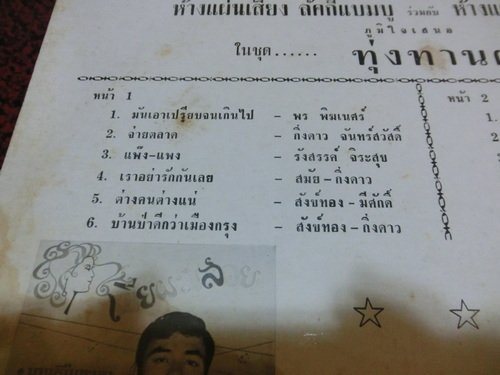 ห้างแผ่นเสียง ลัคกี้แบมบู ร่วมกับ ห้าง
ภูมิใจเสนอ
ในชุด...... ทุ่งทาน
หน้า 1
หน้า 2
1. มันเอาเปรียบจนเกินไป - พร พิฆเนศร์
2. จ่ายตลาด - กิ่งดาว จันทร์สวัสดิ์
3. แพ๊ง-แพง - รังสรรค์ จิระสุข
4. เราอย่ารักกันเลย - สมัย-กิ่งดาว
5. ต่างคนต่างแน่ - สังข์ทอง-มีศักดิ์
6. บ้านป่าดีกว่าเมืองกรุง - สังข์ทอง-กิ่งดาว